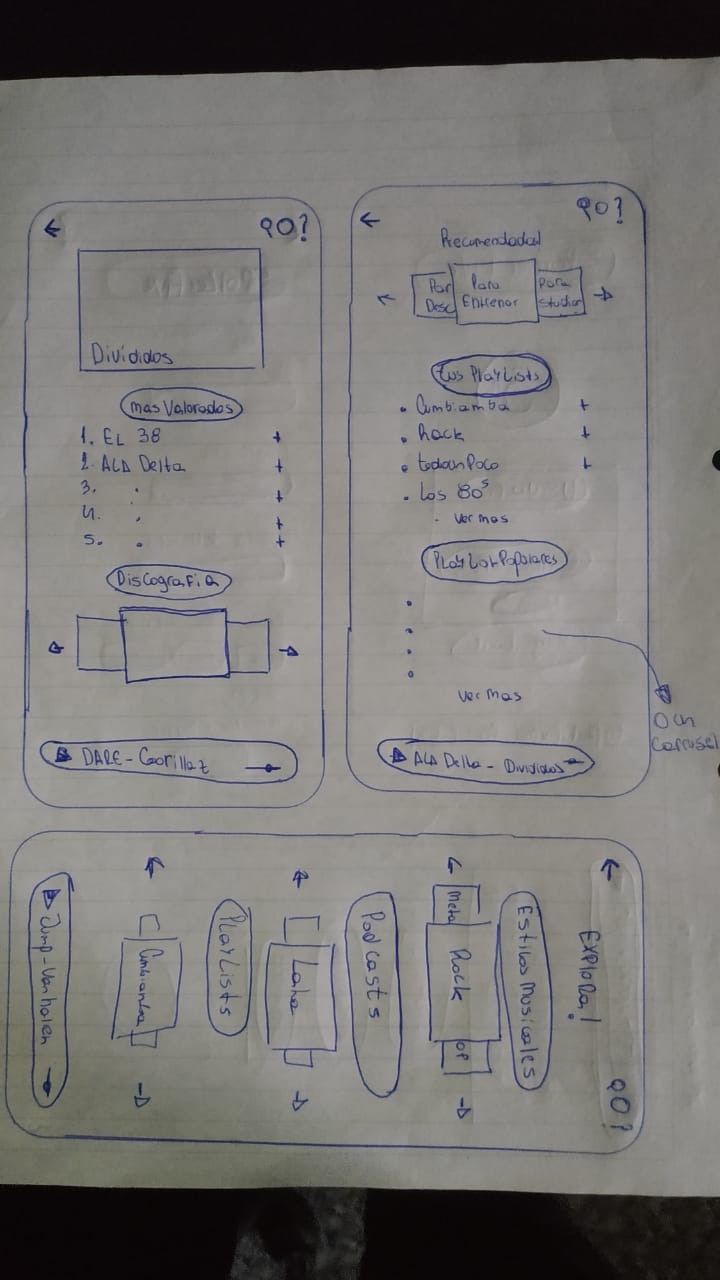 QO?
Divididos
mas Valorados
1. EL 38 +
2. ALA Delta +
3. . +
4. . +
5. . +
Discografia
DARE - Goorillaz
QO?
Recomendada!
Par Desc
Para Entrenar
Para studiar
tus PlayLists
. Cumbiamba +
. Rock +
. todounPoco +
. Los 80s
. ver mas
PlayList Populares
ver mas
O un
Carrusel
ALA Delta - Divididos
QO?
EXPlora!
Estilos musicales
Metal
Rock
OP
Podcasts
PlayLists
Cumbiamba
Jump - Van halen